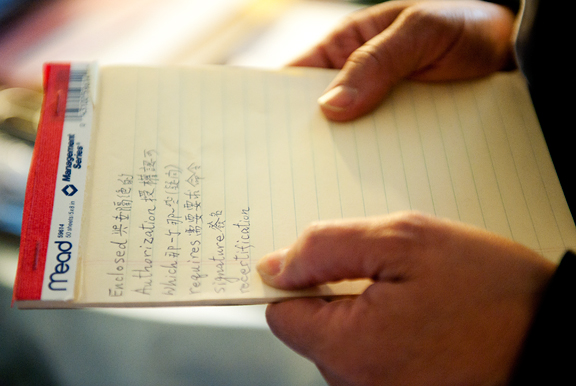 Mead
50 sheets 5x8 in
Management
Series
Enclosed
Authorization 授權認可
Which 那一个那一些(疑问)
requires 需要要求命令
signature 签名
recertification